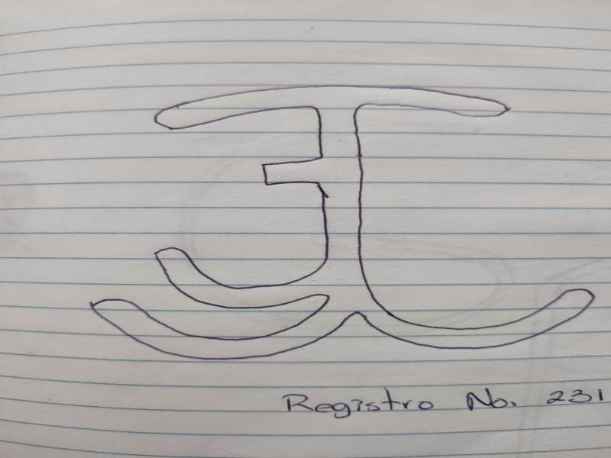 Registro No. 231